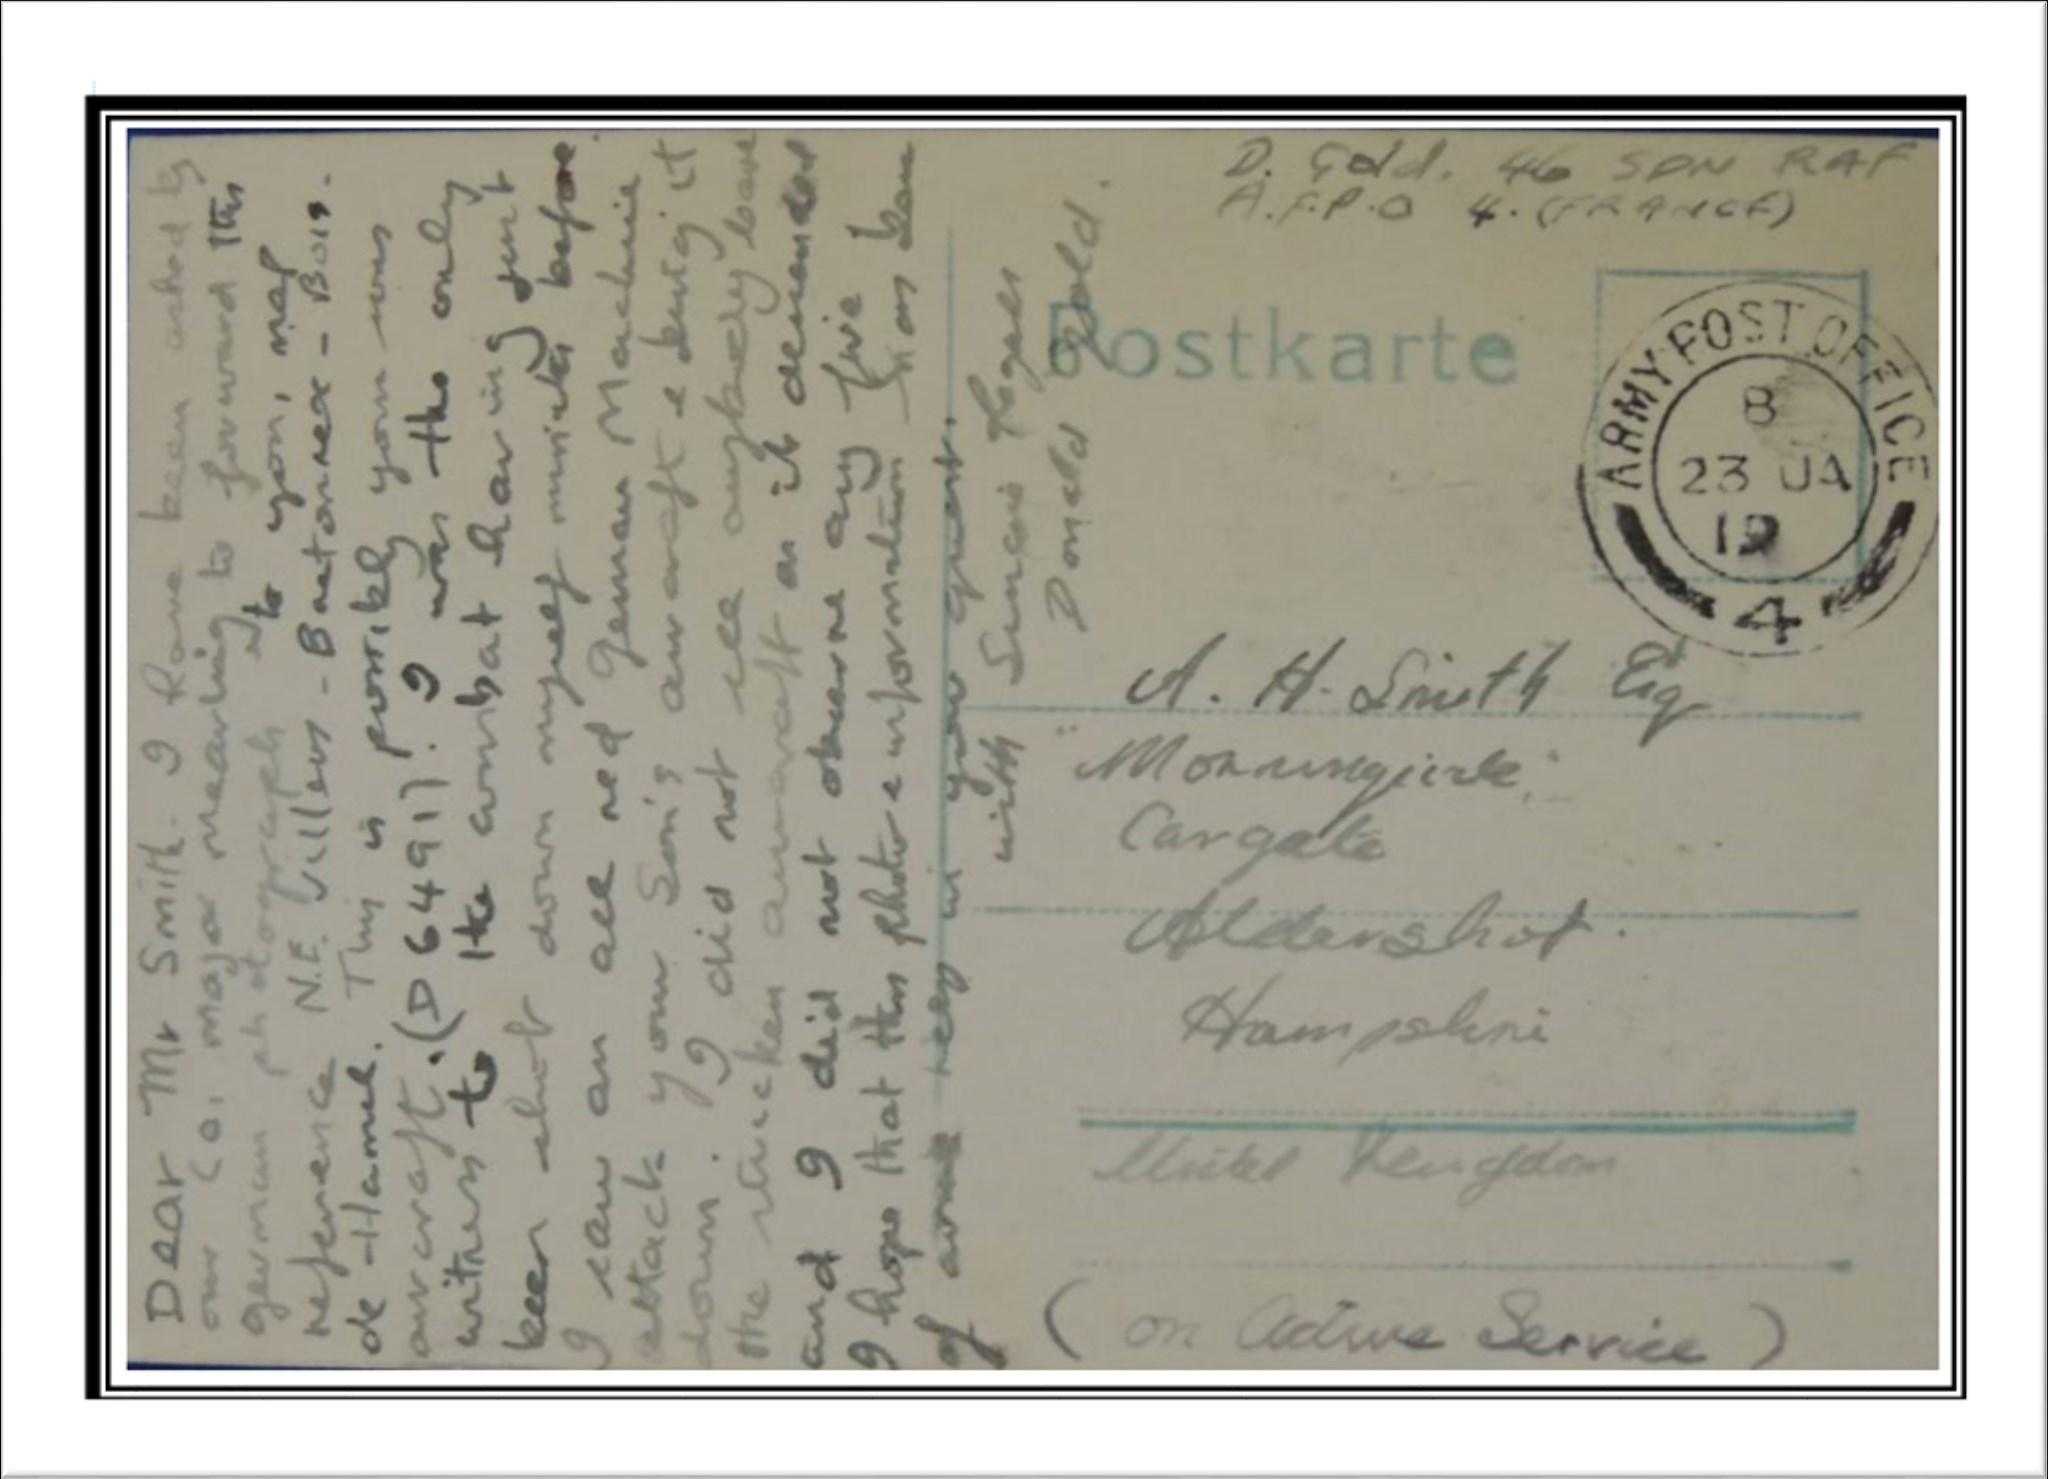 Dear Mr Smith. I have been asked by
our Co, major mearling to forward this
german photograph to you, map
reference N.E. Villers-Bretonnex-Bois.
de-Hamel. This is possibly your sons
aircraft. (D6491). I was the only
witness to the combat having just
been shot down myself minutes before.
I saw an all red german Machine
attack your Son's aircraft & bring it
down. I did not see anybody leave
the stricken aircraft as it descended
and I did not observe any fire
I hope that this photo & information has been
of some help in your quest.
with Sincere Regards
Donald Gold.
D. Gold. 46 SDN RAF
A.F.P.O 4. (FRANCE)
Postkarte
ARMY POST OFFICE
B
23 JA
19
4
A. H. Smith Esq
"Morningside"
Cargate
Aldershot.
Hampshire
United Kingdom
(on Active Service)